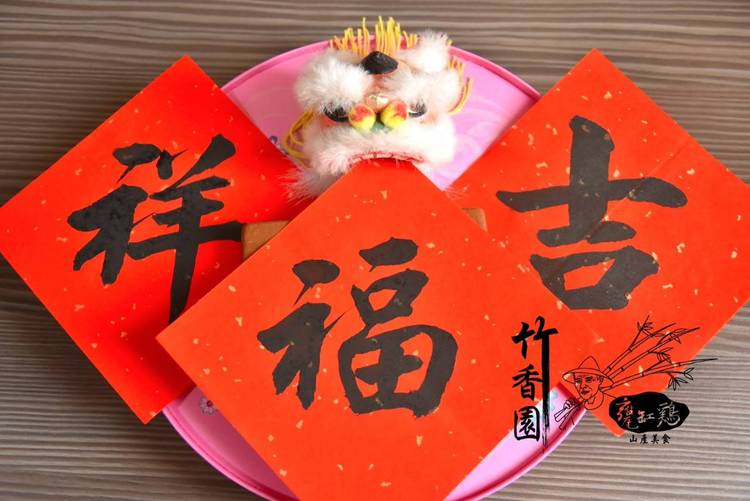 祥
福
吉
竹香園
甕缸鷄
山產美食